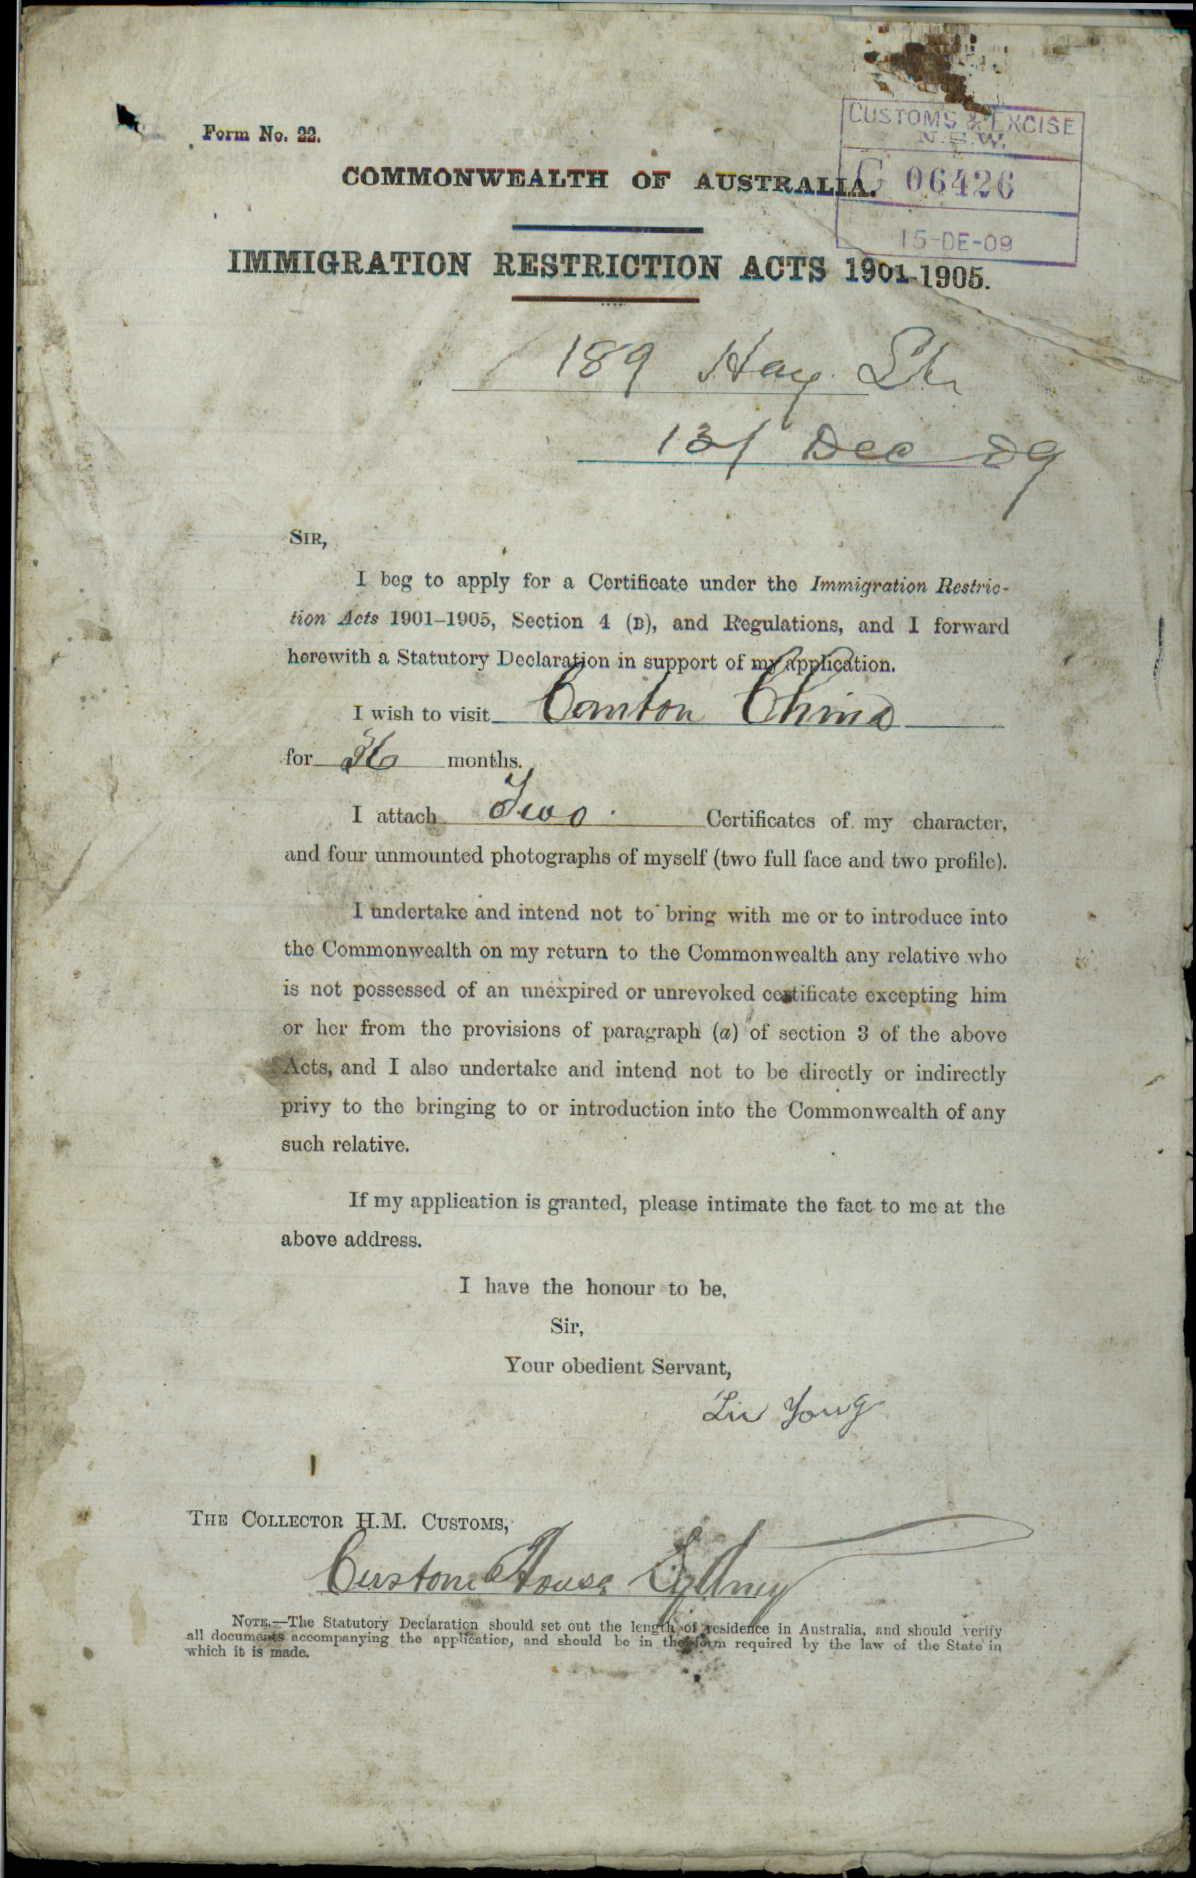 Form No. 22.
CUSTOMS & EXCISE
N.S.W.
G 06426
15-DE-09
COMMONWEALTH OF AUSTRALIA.
IMMIGRATION RESTRICTION ACTS 1901-1905.
189 Hay Str
13/ Dec 09
SIR,
I beg to apply for a Certificate under the Immigration Restric-
tion Acts 1901–1905, Section 4 (B), and Regulations, and I forward
herewith a Statutory Declaration in support of my application.
I wish to visit Canton China
for 36 months.
I attach Two Certificates of my character,
and four unmounted photographs of myself (two full face and two profile).
I undertake and intend not to bring with me or to introduce into
the Commonwealth on my return to the Commonwealth any relative who
is not possessed of an unexpired or unrevoked certificate excepting him
or her from the provisions of paragraph (a) of section 3 of the above
Acts, and I also undertake and intend not to be directly or indirectly
privy to the bringing to or introduction into the Commonwealth of any
such relative.
If my application is granted, please intimate the fact to me at the
above address.
I have the honour to be,
Sir,
Your obedient Servant,
Liu Young
THE COLLECTOR H.M. CUSTOMS,
Custom House Sydney
NOTE.—The Statutory Declaration should set out the length of residence in Australia, and should verify
all documents accompanying the application, and should be in the form required by the law of the State in
which it is made.